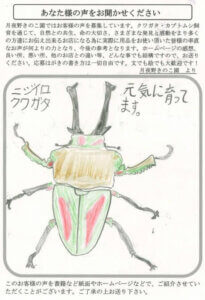 あなた様の声をお聞かせください
月夜野きのこ園ではお客様の声を募集しています。クワガタ・カブトムシ飼
育を通じて、自然との共生、命の大切さ、さまざまな発見と感動をより多く
の方達にお伝え出来るお店になる為に実際に用品をお使い頂いた皆様の率直
なお声が何よりの力となり、今後の参考となります。ホームページの感想、
良い所、悪い所、他のお店との違い等、どんな事でも結構ですので、お送り
ください。応募はがきの書き方は一切自由です。文でも絵でも大歓迎です!
月夜野きのこ園 より
ニジイロ
クワガタ
元気に育って
ます。
このお客様の声を書籍など紙面やホームページなどで、ご紹介させていた
だくことがございます。ご了承の上お送り下さい。